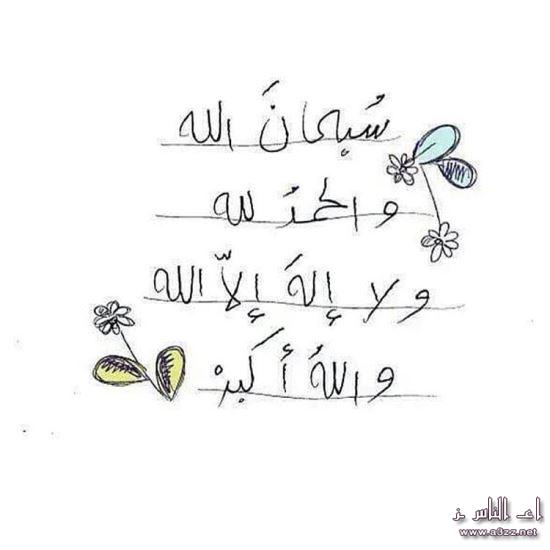 سُبحانَ الله
والحمدُ لله
ولا إلهَ إلاّ الله
واللهُ أكبرْ
اعـ الناس ـز
www.a3zz.net